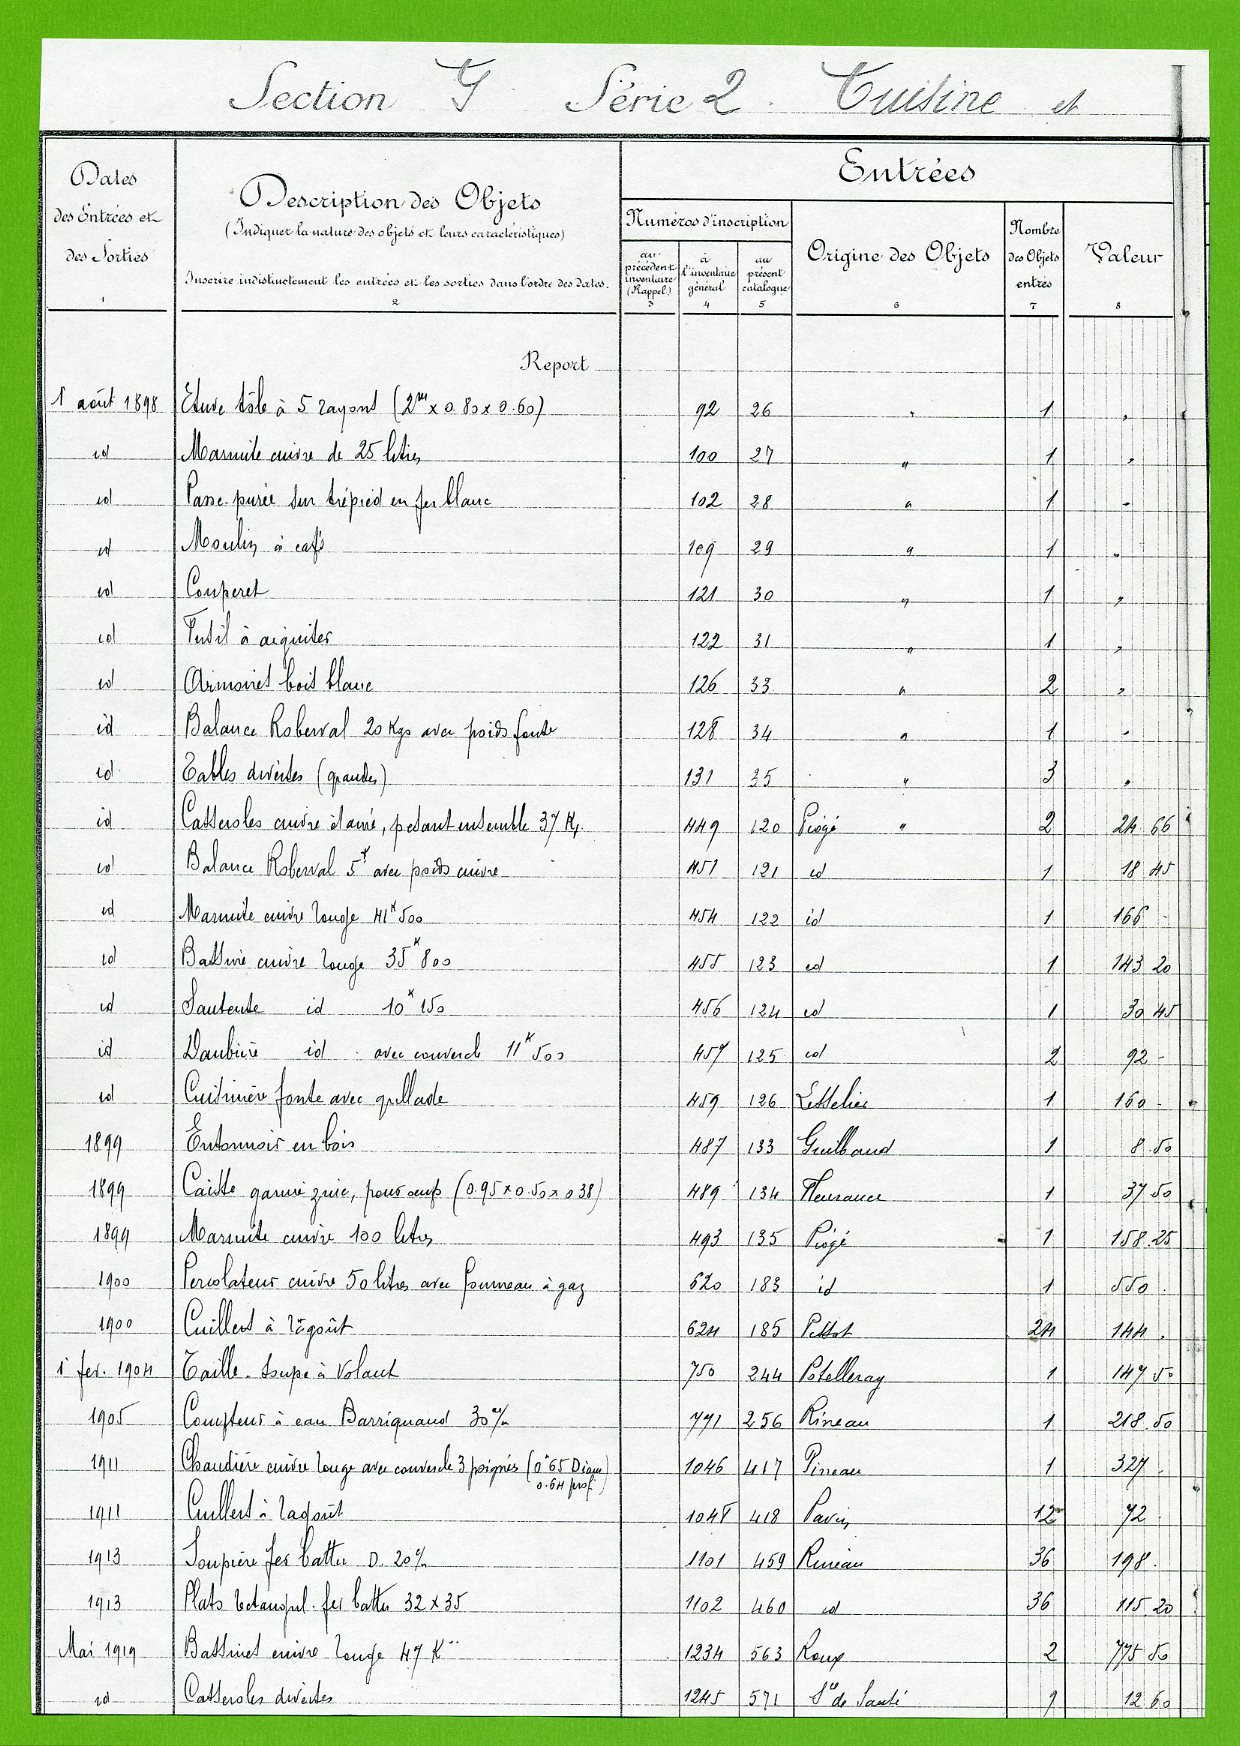 Section Y Série 2 Cuisine et
Dates des Entrées et des Sorties 1
Description des Objets
(Indiquer la nature des objets et leurs caractéristiques)
Inscrire indistinctement les entrées et les sorties dans l'ordre des dates.
2
Entrées
Numéros d'inscription
au précédent inventaire (Rappel) 3
à l'inventaire général 4
au présent catalogue 5
Origine des Objets 6
Nombre des Objets entrés 7
Valeur 8
Report
1 août 1898 Etuve tôle à 5 rayons (2m x 0.80 x 0.60) 92 26 " 1 "
id Marmite cuivre de 25 litres 100 27 " 1 "
id Passe-purée sur trépied en fer blanc 102 28 " 1 "
id Moulin à café 109 29 " 1 "
id Couperet 121 30 " 1 "
id Fusil à aiguiser 122 31 " 1 "
id Armoires bois blanc 126 33 " 2 "
id Balance Roberval 20 Kgs avec poids fonte 128 34 " 1 "
id Tables diverses (grandes) 131 35 " 3 "
id Casseroles cuivre étamé, pesant ensemble 37 K. 449 120 Piégé " 2 24 66
id Balance Roberval 5K avec poids cuivre 451 121 id 1 18 45
id Marmite cuivre rouge 41K500 454 122 id 1 166 -
id Bassine cuivre rouge 35K800 455 123 id 1 143 20
id Sauteuse id 10K150 456 124 id 1 30 45
id Daubière id avec couvercle 11K500 457 125 id 2 92 -
id Cuisinière fonte avec grillade 459 126 Lesselier 1 160 -
1899 Entonnoir en bois 487 133 Guilbaud 1 8.50
1899 Caisse garnie zinc, pour œufs (0.95 x 0.50 x 0.38) 489 134 Fleurance 1 37 50
1899 Marmite cuivre 100 litres 493 135 Piégé 1 158.25
1900 Percolateur cuivre 50 litres avec fourneau à gaz 620 183 id 1 550.
1900 Cuillers à ragoût 624 185 Pessot 24 144.
1 fév. 1904 Taille-soupe à volant 750 244 Potelleray 1 147 50
1905 Compteur à eau Barriquand 30m/m 771 256 Rineau 1 218.50
1911 Chaudière cuivre rouge avec couvercle 3 poignées (0m65 Diam 1046 417 Pineau 1 327 -
0.64 prof.)
1911 Cuillers à ragoût 1048 418 Pavin 12 72
1913 Soupière fer battu D. 20% 1101 459 Rineau 36 198.
1913 Plats rectangul. fer battu 32 x 35 1102 460 id 36 115 20
Mai 1919 Bassines cuivre rouge 47 K 1234 563 Roux 2 775 50
id Casseroles diverses 1245 571 Sce de Santé 7 12 60